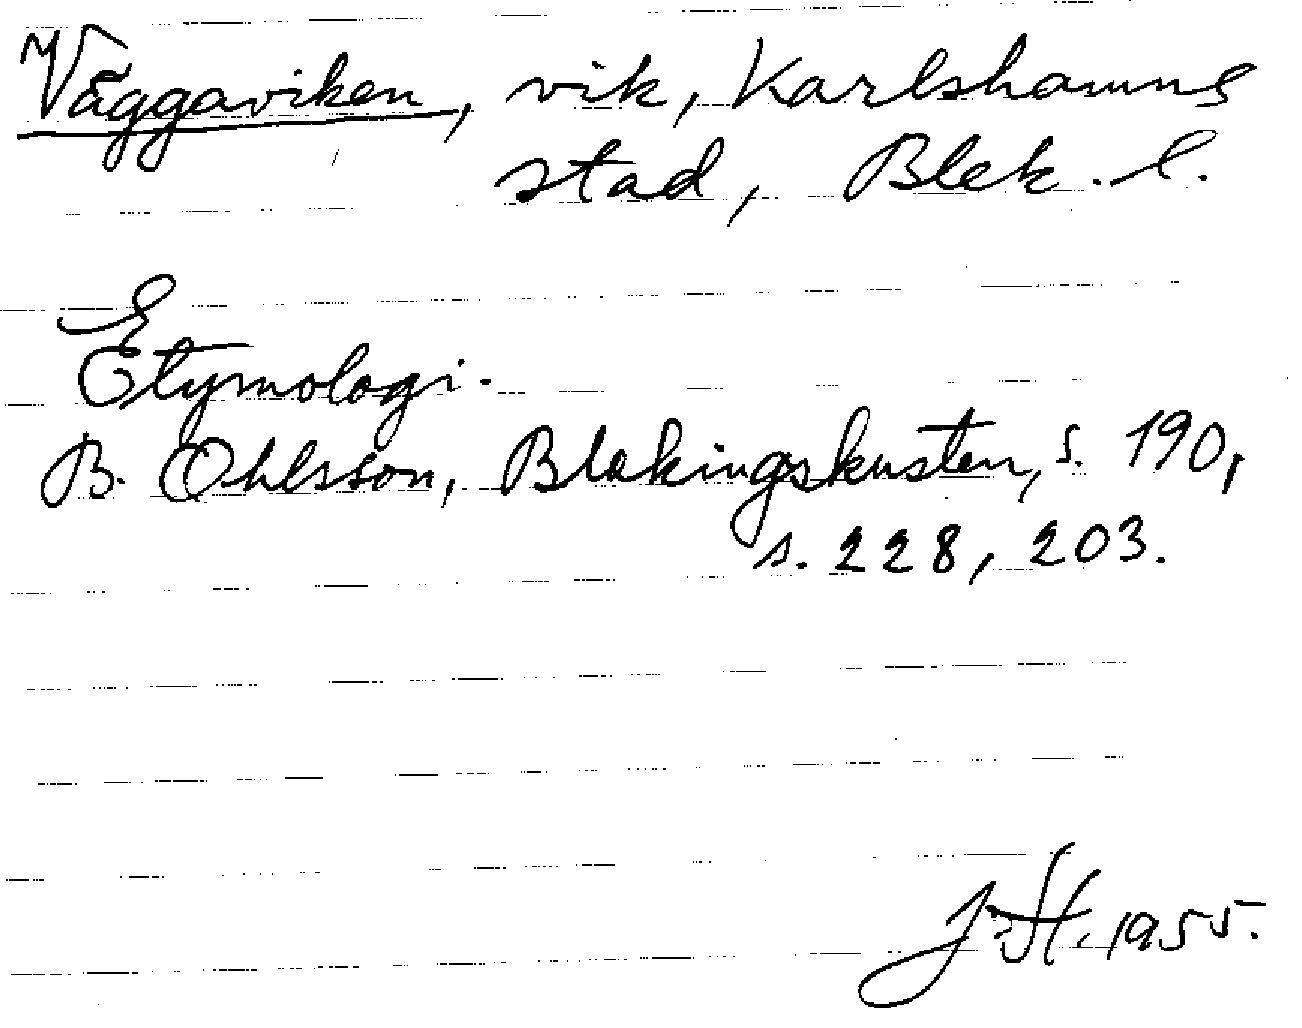 Väggaviken, vik, Karlshamns
stad, Blek. l.
Etymologi.
B. Ohlsson, Blekingskusten, s. 190,
s. 228, 203.
J. St. 1955.